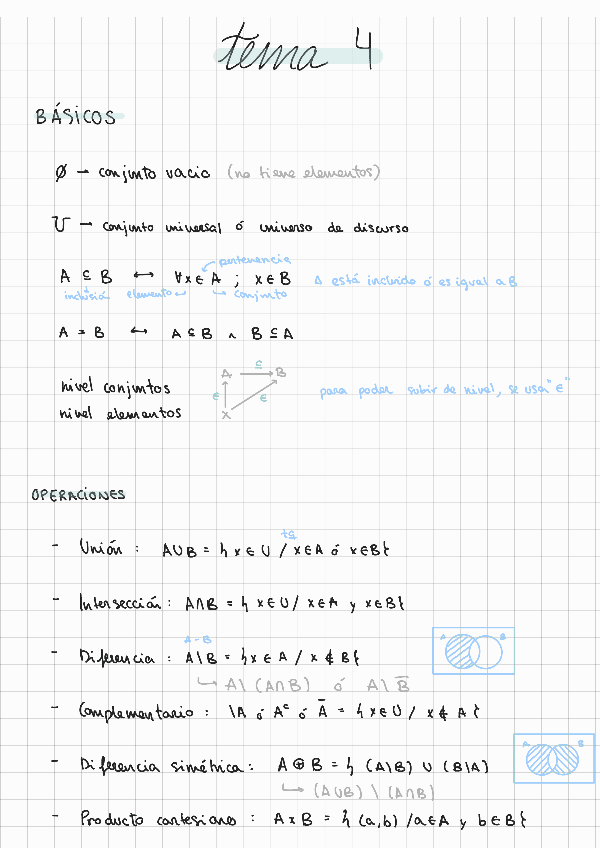 tema 4
BÁSICOS
Ø → conjunto vacio (no tiene elementos)
U → conjunto universal ó universo de discurso
pertenencia
A ⊆ B ↔ ∀x ∈ A ; x ∈ B A está incluido ó es igual a B
inclusión elemento ↵ ↳ conjunto
A = B ↔ A ⊆ B ∧ B ⊆ A
A ⊆ B
nivel conjuntos
∈ ∈ para poder subir de nivel, se usa "∈"
nivel elementos x
OPERACIONES
tq
- Unión : A∪B = { x ∈ U / x∈A ó x∈B}
- Intersección : A∩B = { x∈U / x∈A y x∈B}
A-B
- Diferencia : A\B = {x ∈ A / x ∉ B} A B
↳ A\ (A∩B) ó A\ B̅
- Complementario : \A ó Aᶜ ó A̅ = { x∈U / x∉ A }
- Diferencia simétrica : A ⊕ B = { (A\B) ∪ (B\A) A B
↳ (A∪B) \ (A∩B)
- Producto cartesiano : A x B = { (a,b) /a∈A y b∈B}